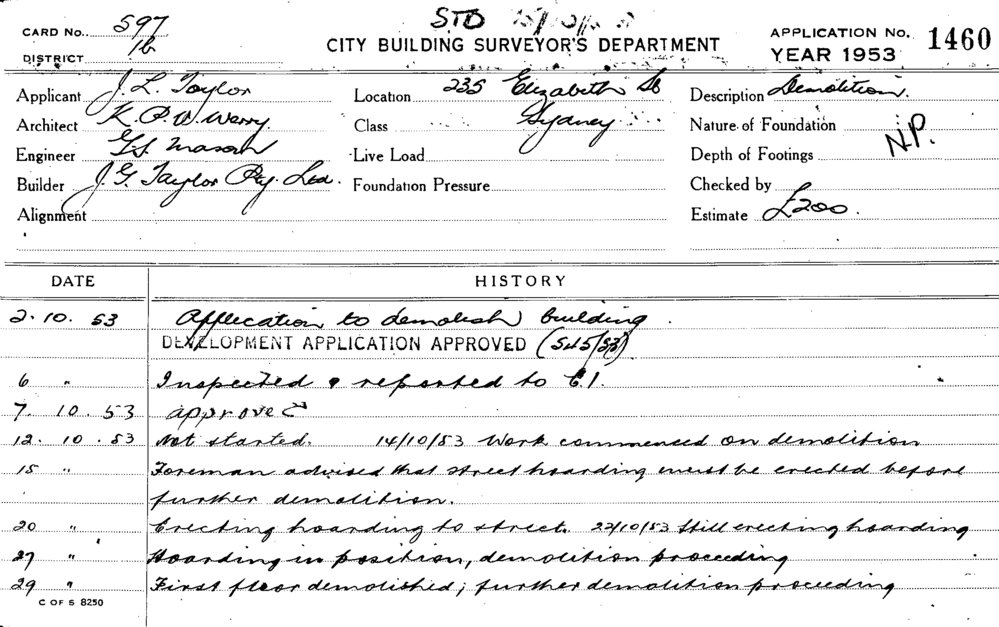 CARD No. 597
DISTRICT 1b
STD
CITY BUILDING SURVEYOR'S DEPARTMENT
APPLICATION No. 1460
YEAR 1953
Applicant J. L. Taylor
Location 235 Elizabeth St
Description Demolition.
Architect K. P. W. Werry.
Class Sydney
Nature of Foundation
N.P.
Engineer Mason
Live Load
Depth of Footings
Builder J. G. Taylor Pty. Ltd.
Foundation Pressure
Checked by
Alignment
Estimate £200.
DATE HISTORY
2.10.53 Application to demolish building.
DEVELOPMENT APPLICATION APPROVED (545/53)
6 " Inspected & reported to C.I.
7.10.53 approved
12.10.53 Not started. 14/10/53 Work commenced on demolition
15 " Foreman advised that street hoarding must be erected before
further demolition.
20 " Erecting hoarding to street. 22/10/53 Still erecting hoarding
27 " Hoarding in position, demolition proceeding
29 " First floor demolished; further demolition proceeding
C OF S 8250